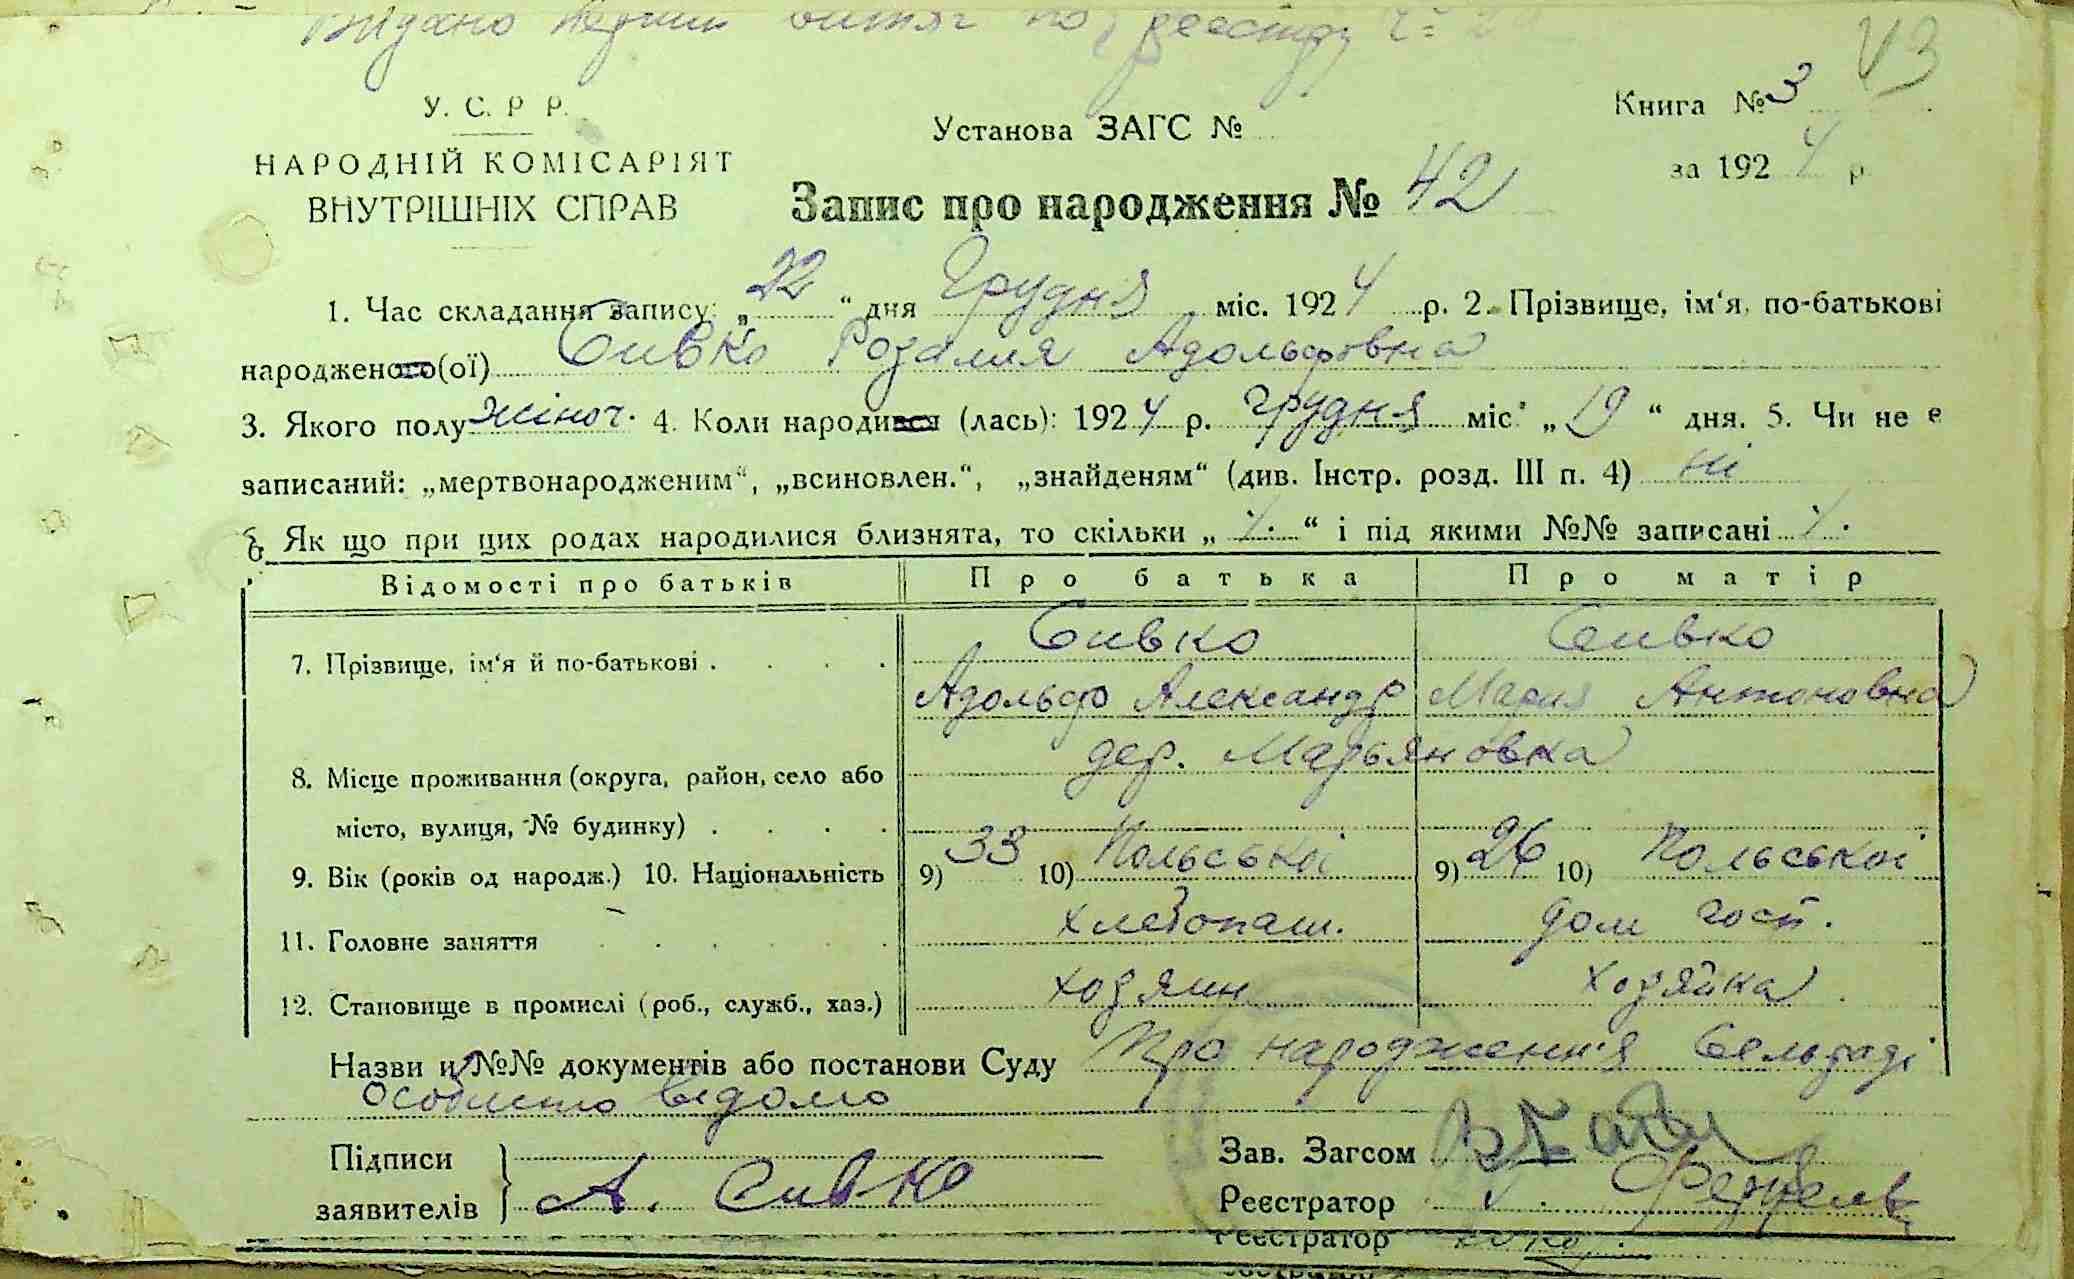 Видано перший витяг по реєстру
43
У. С. Р. Р.
НАРОДНІЙ КОМІСАРІЯТ
ВНУТРІШНІХ СПРАВ
Установа ЗАГС №
Книга № 3
за 1924 р.
Запис про народження № 42
1. Час складання запису: „22“ дня Грудня міс. 1924 р. 2. Прізвище, ім‘я, по-батькові
народженого(ої) Сивко Розалия Адольфовна
3. Якого полу жіноч. 4. Коли народився (лась): 1924 р. грудня міс. „19“ дня. 5. Чи не є
записаний: „мертвонародженим“, „всиновлен.“, „знайденям“ (див. Інстр. розд. III п. 4) ні
6. Як що при цих родах народилися близнята, то скільки „ “ і під якими №№ записані
Відомості про батьків Про батька Про матір
7. Прізвище, ім‘я й по-батькові . . . . Сивко Сивко
Адольф Александр Мария Антоновна
8. Місце проживання (округа, район, село або дер. Марьяновка
місто, вулиця, № будинку) . . . .
9. Вік (років од народж.) 10. Національність 9) 33 10) Польської 9) 26 10) Польської
11. Головне заняття хлебопаш. дом. госп.
12. Становище в промислі (роб., служб., хаз.) хозяин хозяйка
Назви и №№ документів або постанови Суду Про народження Сельраді
Особисто відомо
Підписи
заявителів А. Сивко
Зав. Загсом
Реєстратор
Реєстратор